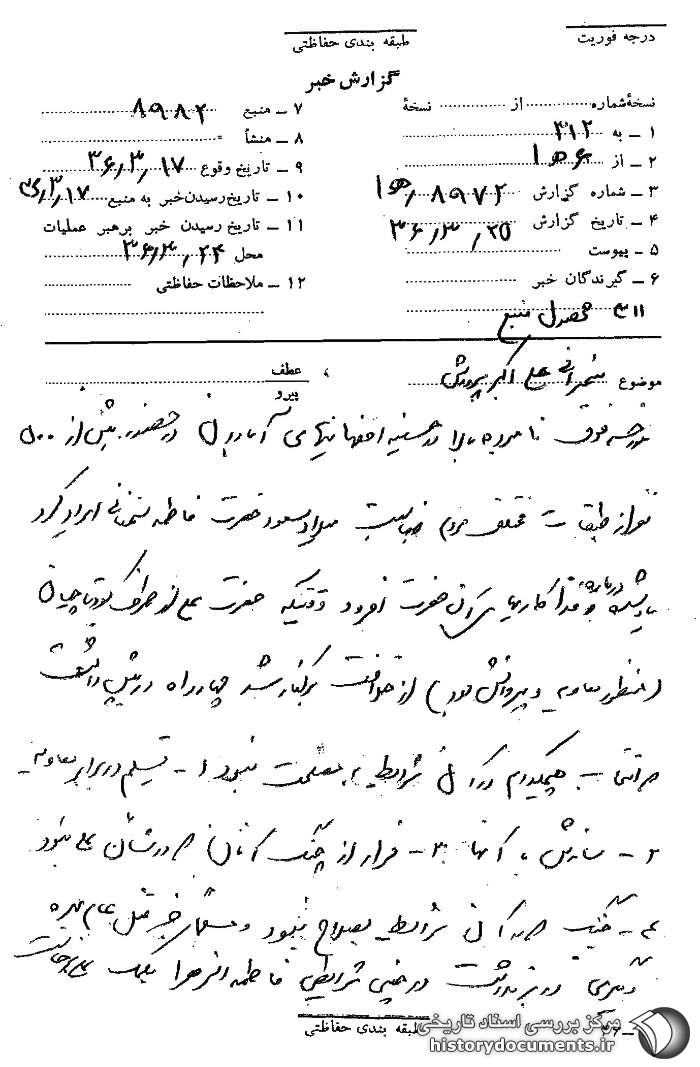 درجه فوریت
طبقه بندی حفاظتی
گزارش خبر
نسخهٔ شماره از نسخهٔ
۱ ــ به ۳۱۲
۲ ــ از ۱۰ ه ۶
۳ ــ شماره گزارش ۸۹۷۲ / ۱۰ ه
۴ ــ تاریخ گزارش ۳۶/۳/۲۵
۵ ــ پیوست
۶ ــ گیرندگان خبر
۳۱۱ محصول منبع
۷ ــ منبع ۸۹۸۲
۸ ــ منشأ
۹ ــ تاریخ وقوع ۳۶/۳/۱۷
۱۰ ــ تاریخ رسیدن خبر به منبع ۳۶/۳/۱۷
۱۱ ــ تاریخ رسیدن خبر برهبر عملیات
محل ۳۶/۳/۲۴
۱۲ ــ ملاحظات حفاظتی
موضوع سخنرانی علی اکبر پرورش
عطف
پیرو
فوق نامبرده بالا در حسینیه اصفهانیهای آبادان در حضور بیش از ۵۰۰
نفر از طبقات مختلف مردم بمناسبت میلاد مسعود حضرت فاطمه سخنانی ایراد کرد
درباره فداکاریهای آن حضرت افزود وقتیکه حضرت علی از طرف کودتاچیان
(منظور معاویه و پیروانش بود) از خلافت برکنار شد چهار راه در پیش داشت
هیچکدام در آن شرایط بمصلحت نبود ۱ - تسلیم در برابر معاویه
۲ - سازش با آنها ۳ - فرار از جنگ آنان در شأن علی نبود
۴ - جنگ در آن شرایط بصلاح نبود و
دیگری در بر نداشت در چنین شرایطی فاطمه الزهرا بکمک علی
طبقه بندی حفاظتی
مرکز بررسی اسناد تاریخی
historydocuments.ir